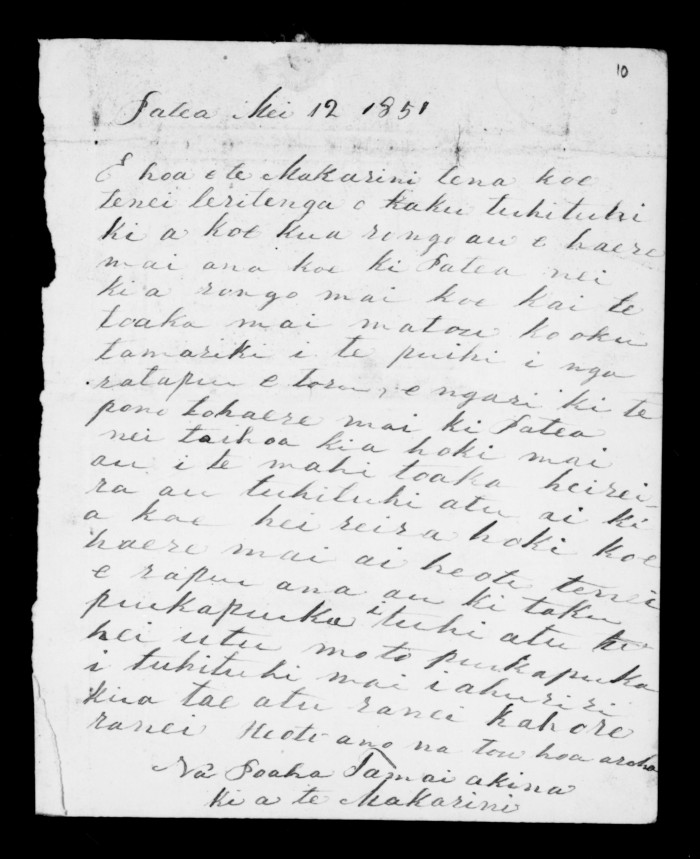 10
Patea Mei 12 1851
E hoa e te Makarini tena koe
tenei te ritenga o kaku tuhituhi
ki a koe kua rongo au e haere
mai ana koe ki Patea nei
kia rongo mai koe kai te
toaka mai matou ko oku
tamariki i te puihi i nga
ratapu e toru, e ngari ki te
pono to haere mai ki Patea
nei taihoa kia hoki mai
au i te mahi toaka heirei
ra au tuhituhi atu ai ki
a koe hei reira hoki koe
haere mai ai heoti tenei
e rapu ana au ki taku
pukapuka i tuhi atu
hei utu mo to pukapuka
i tuhituhi mai i ahuriri
kua tae atu ranei kahore
ranei Heoti ano na tou hoa aroha
Na Paaha Tamai akina
ki a te Makarini